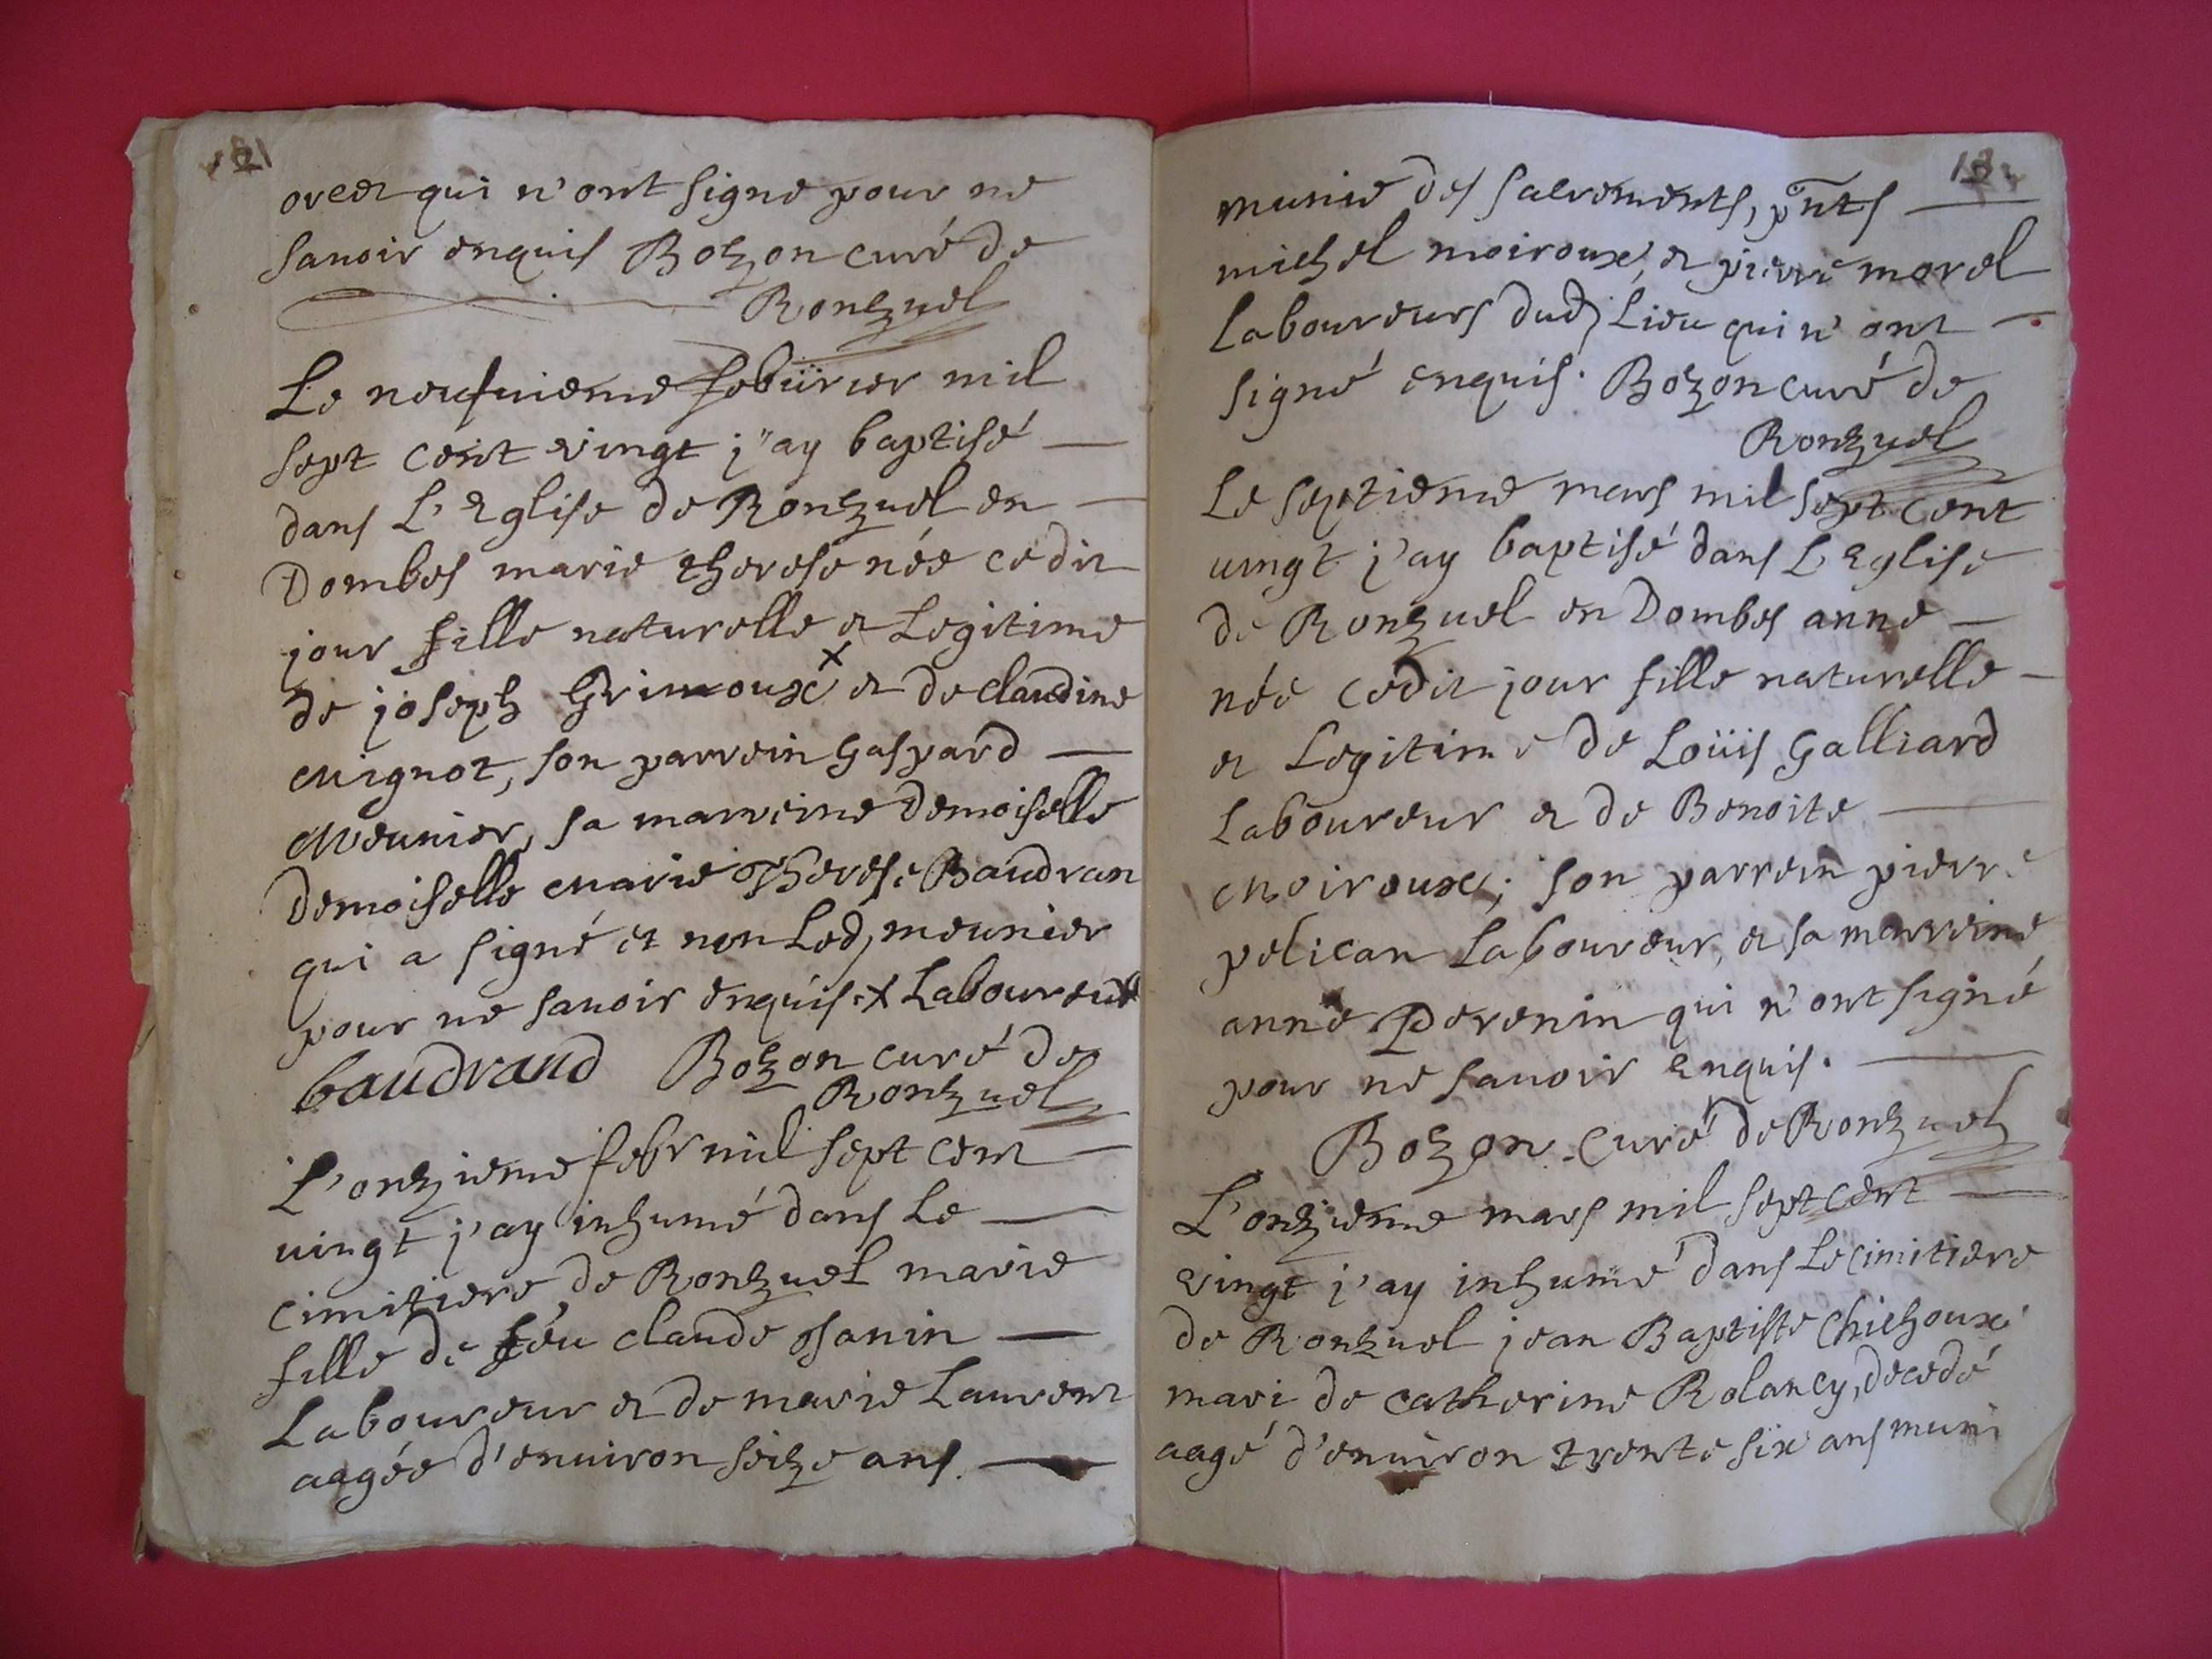 121
orcet qui n'ont signe pour ne
sauoir enquis Bozon curé de
Ronzuel
Le neufuieme febürier mil
sept cent vingt j'ay baptisé
dans L'Eglise de Ronzuel en
Dombes marie therese née cedit
jour fille naturelle et Legitime
de joseph Grimoux x et de claudine
Mignot, son parrein gaspard
Meunier, sa marreine Demoiselle
Demoiselle Marie Therese Baudran
qui a signé et non Led, meunier
pour ne sauoir enquis. x Laboureur
baudrand Bozon curé de
Ronzuel
L'onzieme febr mil sept cent
uingt j'ay inhumé dans Le
cimitiere de Ronzuel marie
fille de feu claude Janin
Laboureur et de marie Laurent
aagée d'enuiron seize ans.
munie des sacrements, pnts
michel moiroux, et pierre morel
Laboureurs dud, Lieu qui n'ont
signé enquis. Bozon curé de
Ronzuel
Le septieme mars mil sept cent
uingt j'ay baptisé dans L'Eglise
de Ronzuel en Dombes anne
née cedit jour fille naturelle
et Legitime de Loüis Galliard
Laboureur et de Benoite
Moiroux; son parrein pierre
pelican Laboureur, et sa marreine
anne Perenin qui n'ont signé
pour ne sauoir enquis.
Bozon curé de Ronzuel
L'onzieme mars mil sept cent
vingt j'ay inhumé dans Le cimitiere
de Ronzuel jean Baptiste Chichoux
mari de catherine Rolancy, decedé
aagé d'enuiron trente six ans muni